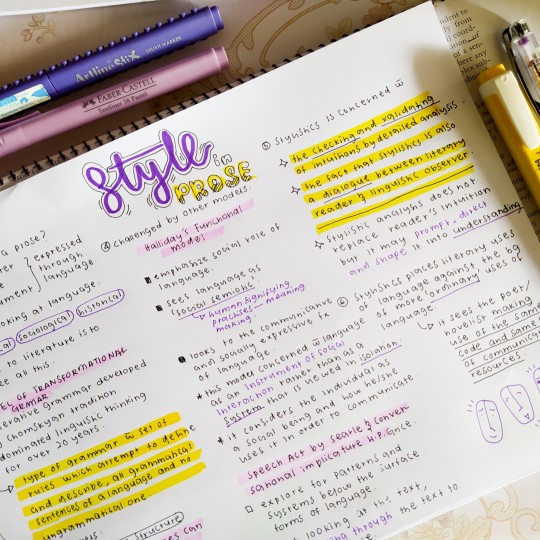 Artline Stix
BRUSH MARKER
FABER-CASTELL
Textliner 38 Pastel
Style in
PROSE
prose?
expressed
through
language
looking at language.
sociological historical
literature is to
all this.
OF TRANSFORMATIONAL
grammar developed
Chomskyan tradition
dominated linguistic thinking
for over 20 years.
type of grammar w̄ set of
rules which attempt to define
and describe, all grammatical
sentences of a language and no
ungrammatical one.
structure
can
Challenged by other models.
Halliday's Functional
model
emphasize social role of
language.
sees language as
social semiotic
human signifying
practices - meaning
making.
looks to the communicative
and socially expressive fx
of language.
* this model concerned w̄ language
as an instrument of social
interaction rather than as a
system that is viewed in isolation.
* it considers the individual as
a social being and how he/she
uses it in order to communicate.
Speech Act by Searle & Conver
sational implicature H.P. Grice.
explore for patterns and
systems below the surface
forms of language.
looking at the text,
through the text to
⑤ Stylistics is concerned w̄
the checking and validating
of intuitions by detailed analysis.
the fact that stylistics is also
a dialogue between literary
reader & linguistic observer.
Stylistic analysis does not
replace reader's intuition
but it may prompt, direct
and shape it into understanding
⑥ Stylistics places literary uses
of language against the bg
of more ordinary uses of
language.
it sees the poet/
novelist making
use of the same
code and same
of communication
resources.